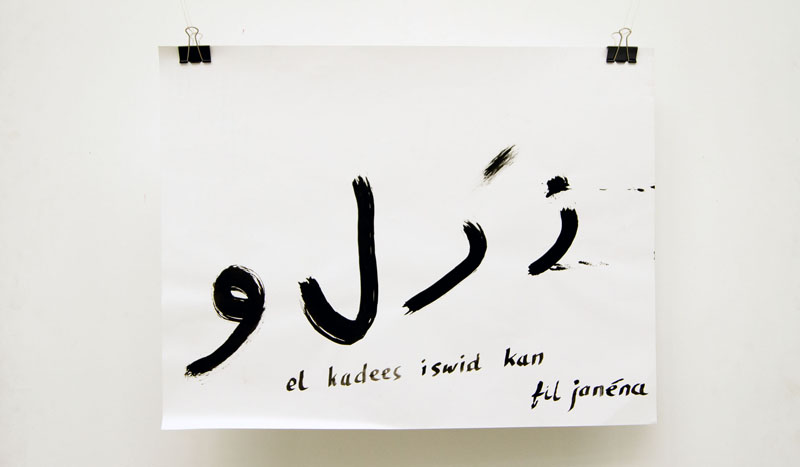 زرَ ل و
el kadees iswid kan
fil janéna